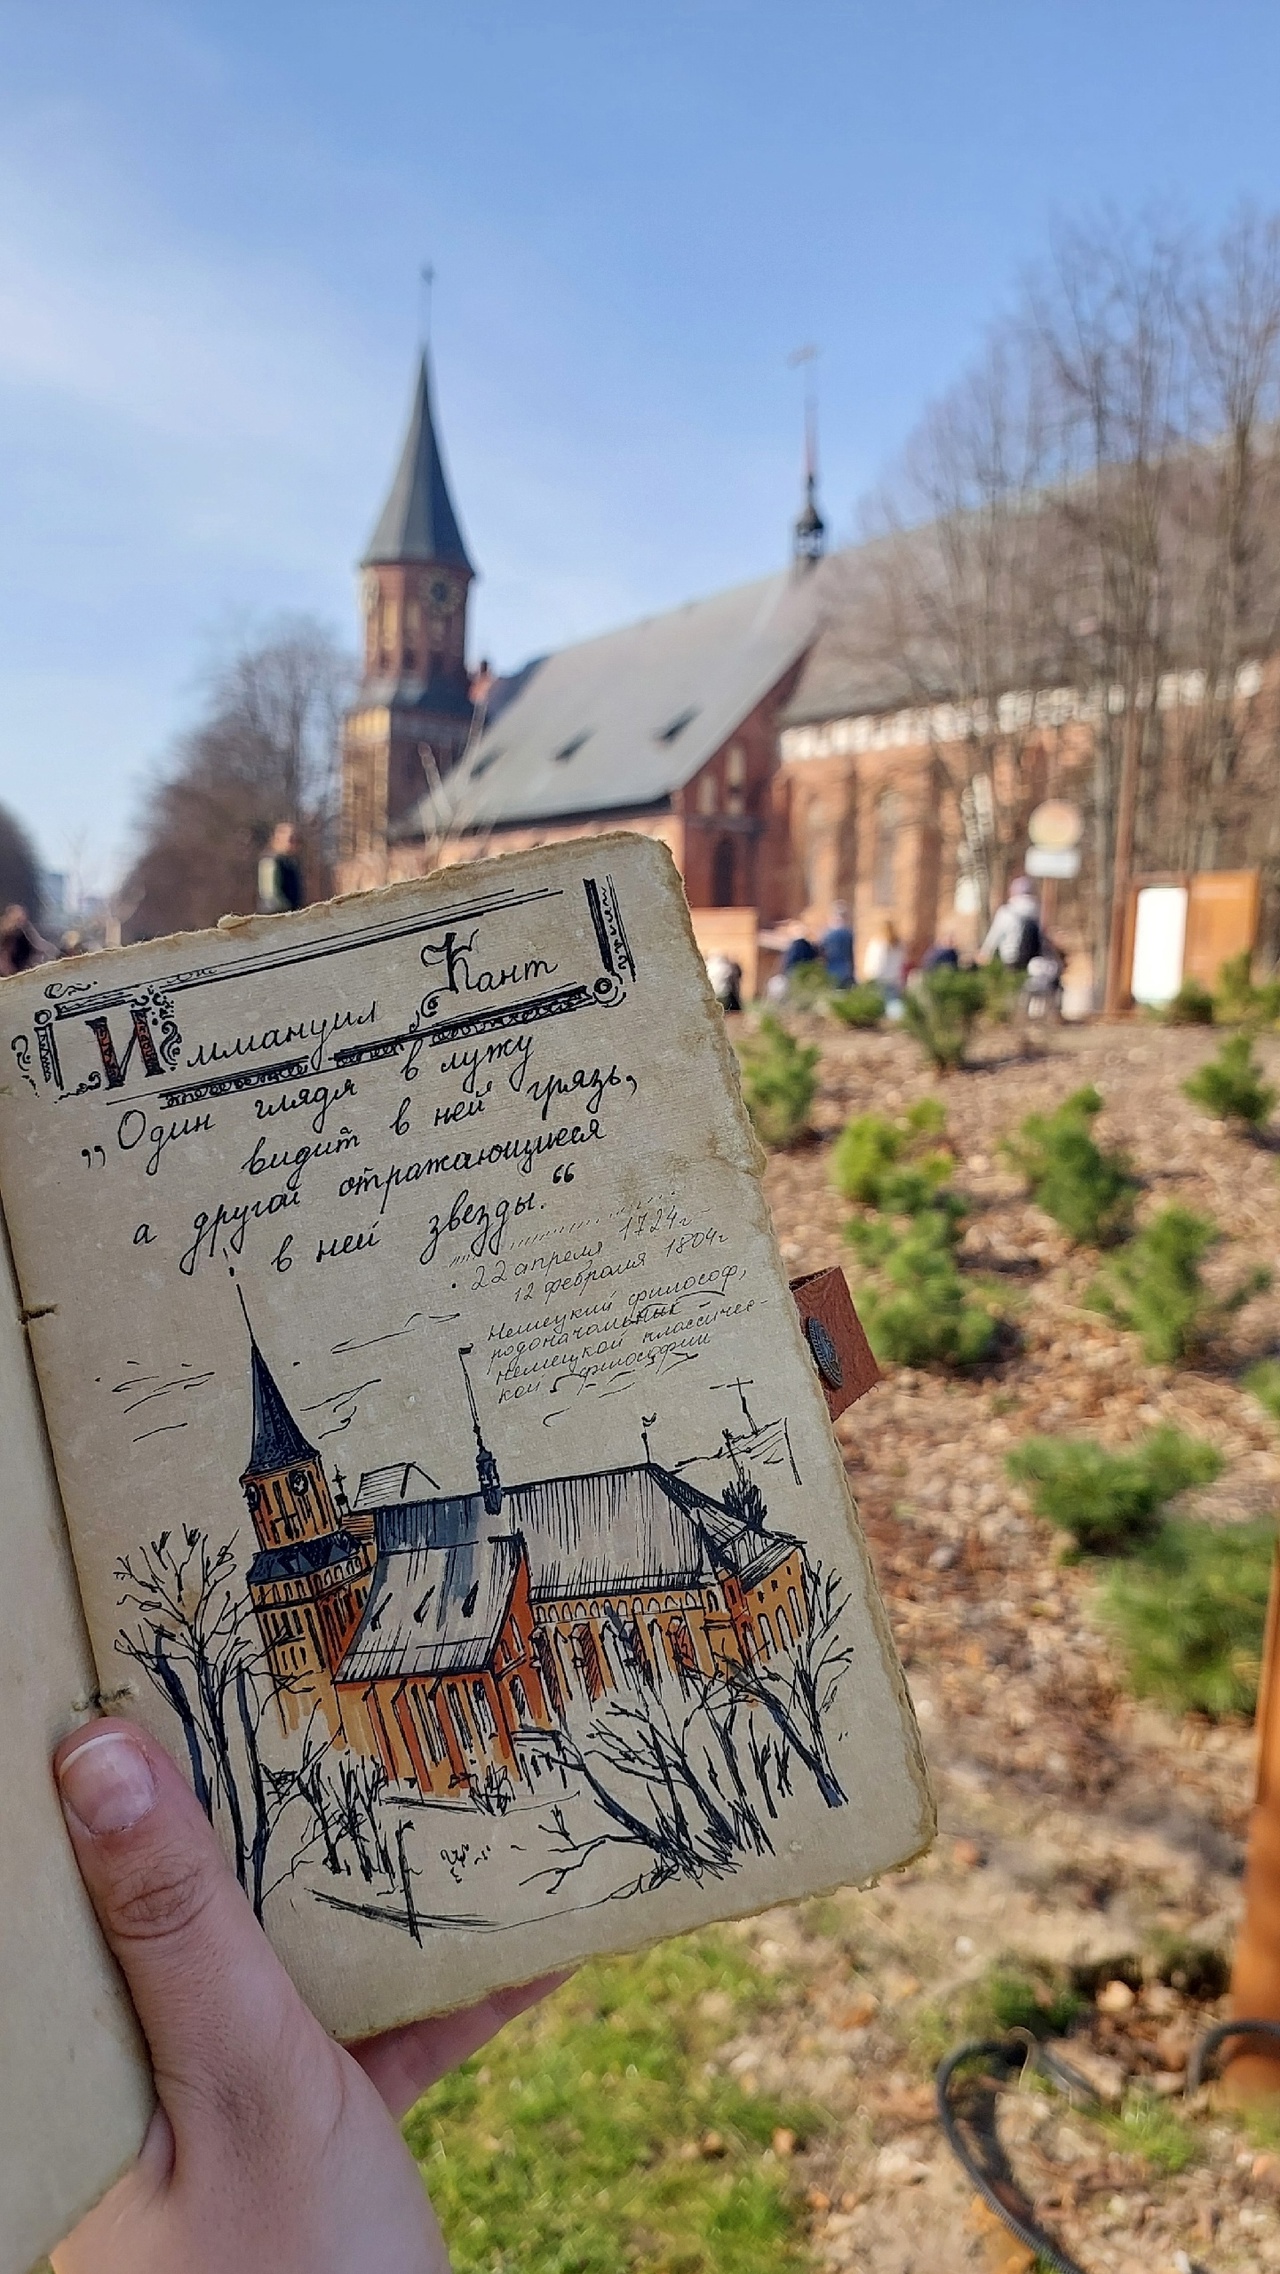 Иммануил Кант
„Один глядя в лужу
видит в ней грязь,
а другой отражающиеся
в ней звезды.“
22 апреля 1724г
12 февраля 1804г
Немецкий философ,
родоначальник
немецкой классичес-
кой философии